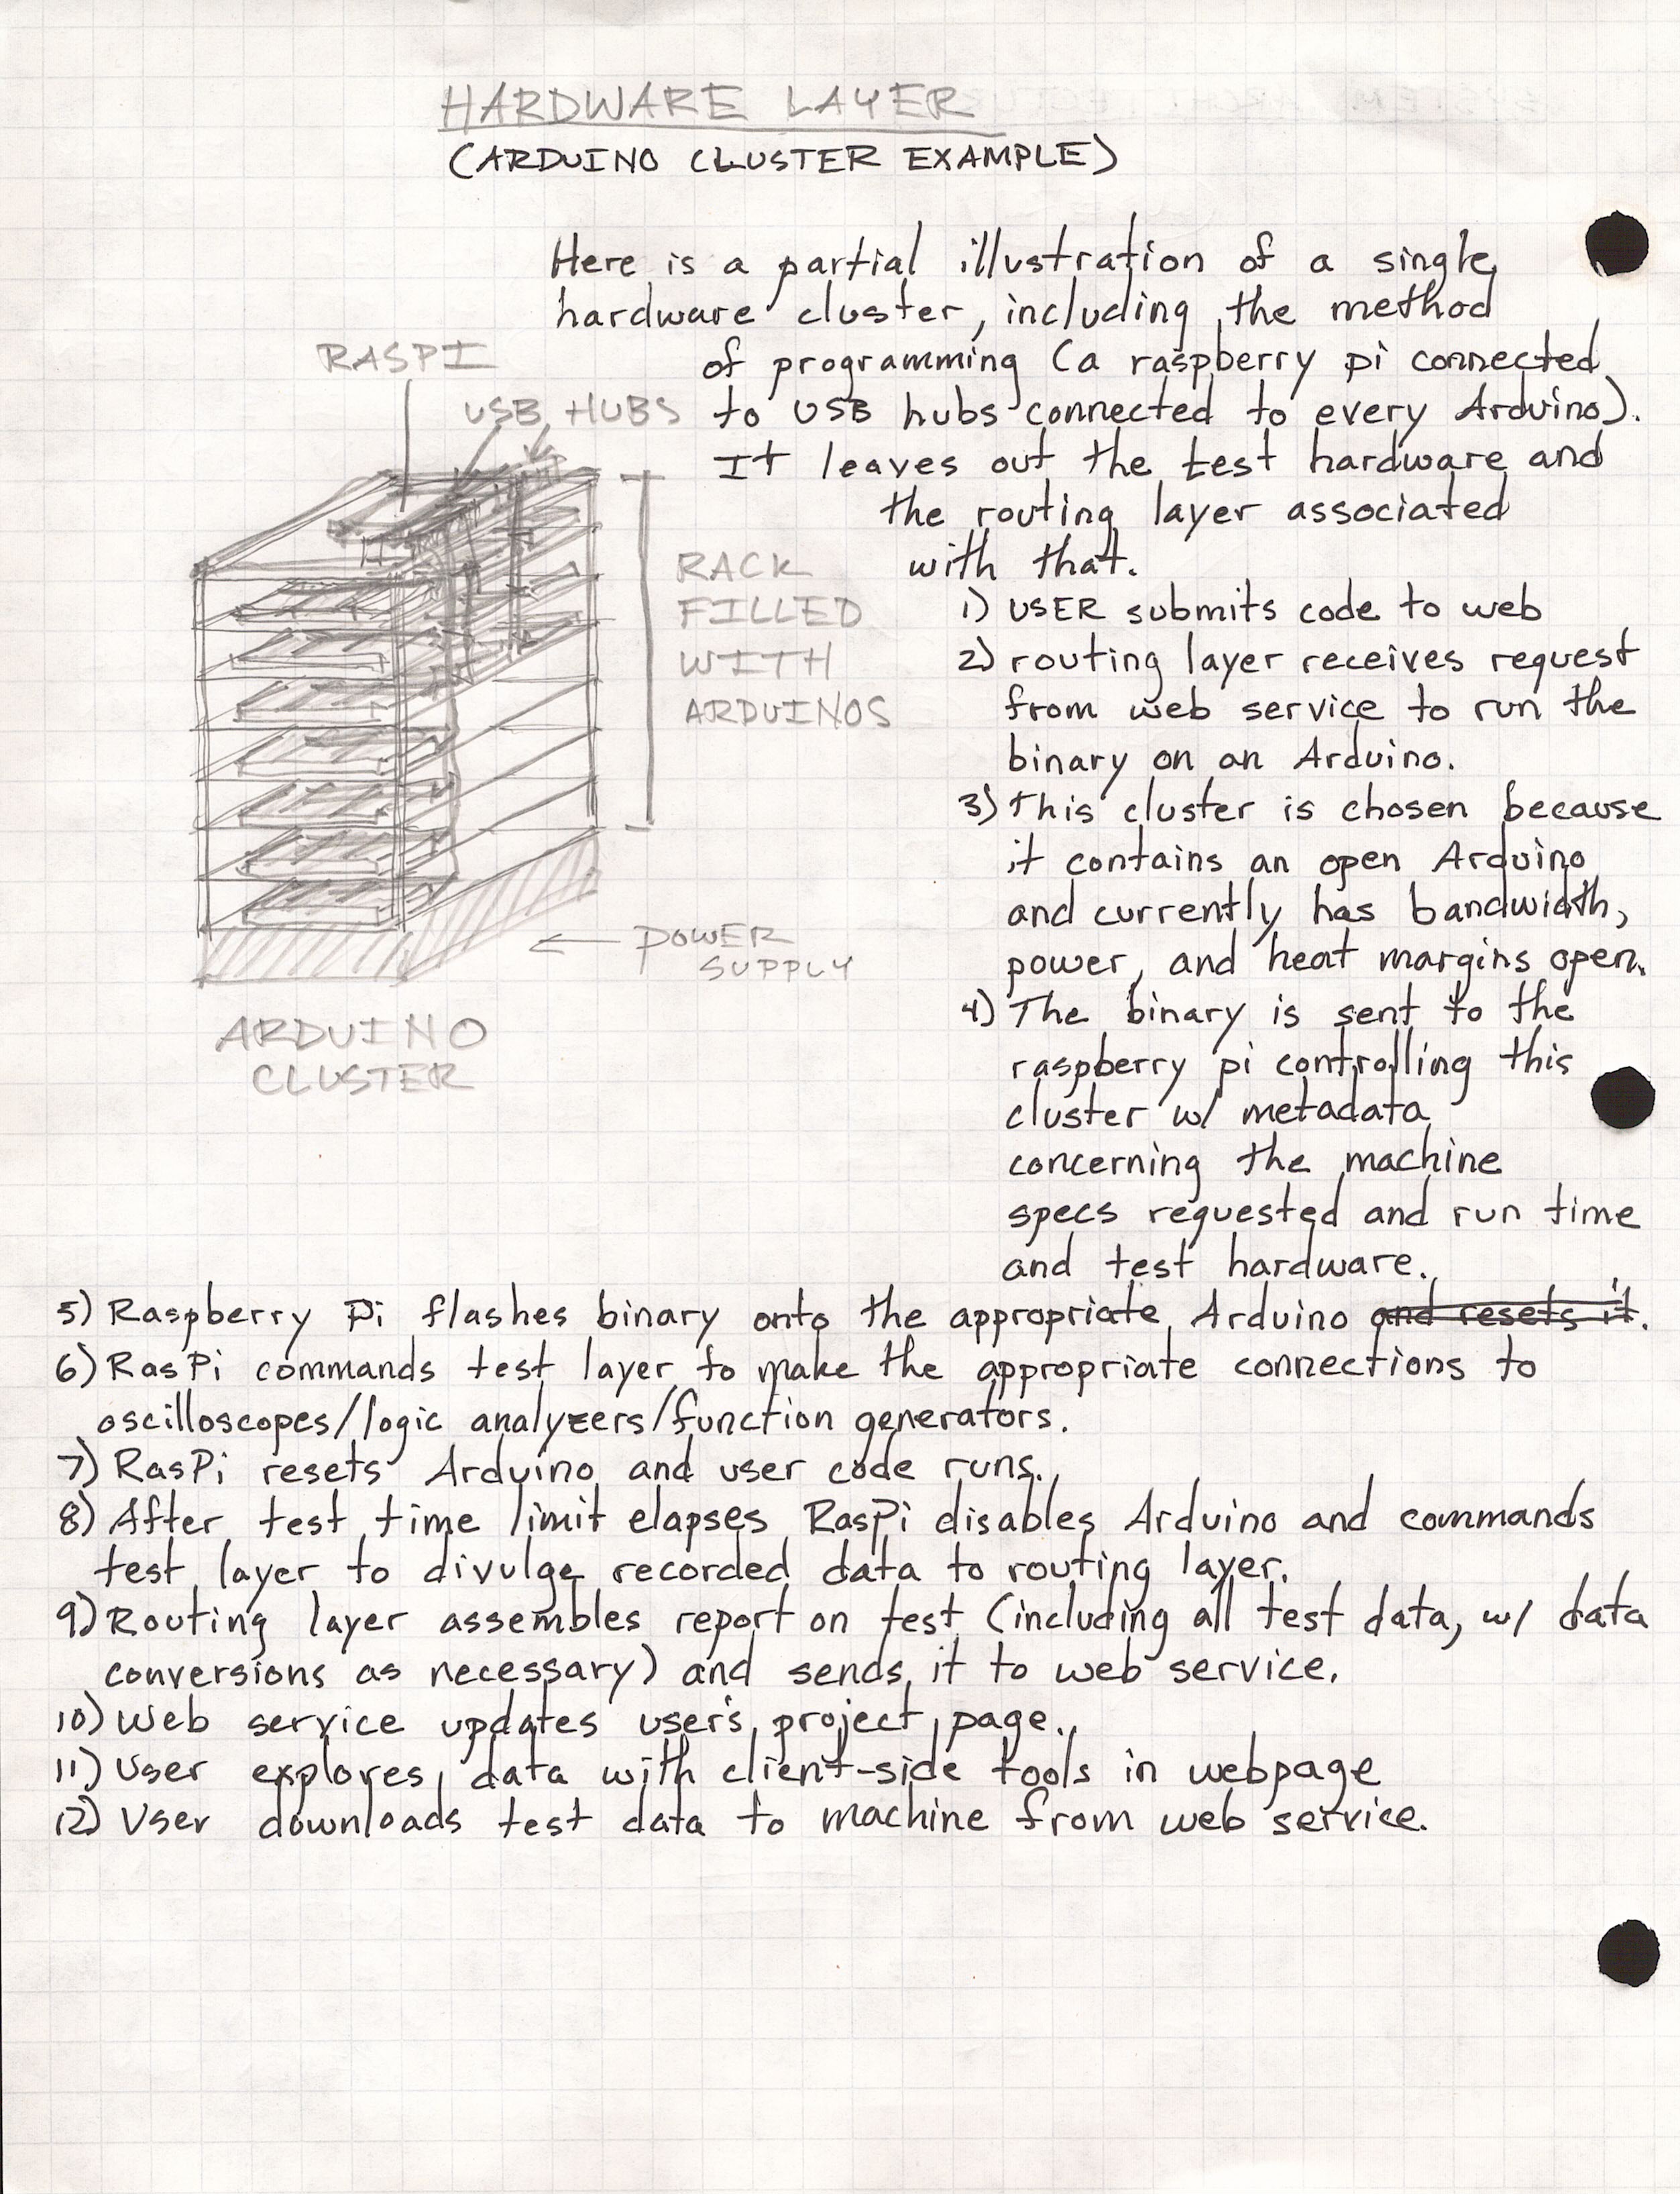 HARDWARE LAYER
(ARDUINO CLUSTER EXAMPLE)
Here is a partial illustration of a single
hardware cluster, including the method
of programming (a raspberry pi connected
to USB hubs connected to every Arduino).
It leaves out the test hardware and
the routing layer associated
with that.
RASPI
USB HUBS
RACK
FILLED
WITH
ARDUINOS
POWER
SUPPLY
ARDUINO
CLUSTER
1) USER submits code to web
2) routing layer receives request
from web service to run the
binary on an Arduino.
3) This cluster is chosen because
it contains an open Arduino
and currently has bandwidth,
power, and heat margins open.
4) The binary is sent to the
raspberry pi controlling this
cluster w/ metadata
concerning the machine
specs requested and run time
and test hardware.
5) Raspberry Pi flashes binary onto the appropriate Arduino and resets it.
6) RasPi commands test layer to make the appropriate connections to
oscilloscopes/logic analyzers/function generators.
7) RasPi resets Arduino and user code runs.
8) After test time limit elapses RasPi disables Arduino and commands
test layer to divulge recorded data to routing layer.
9) Routing layer assembles report on test (including all test data, w/ data
conversions as necessary) and sends it to web service.
10) Web service updates user's project page.
11) User explores data with client-side tools in webpage
12) User downloads test data to machine from web service.